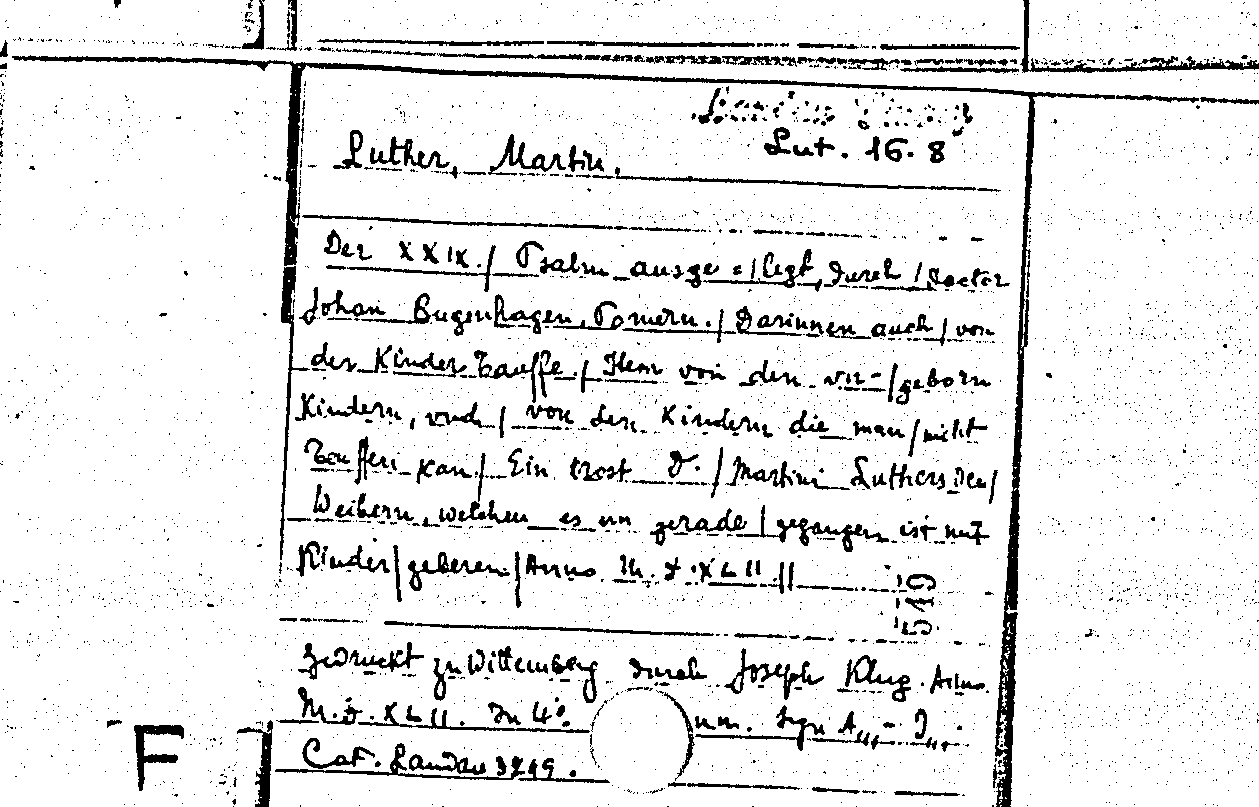 Lut. 16. 8
Luther, Martin.
Der XXIX. / Psalm ausge = / legt, durch / Doctor
Johan Bugenhagen, Pomern. / Darinnen auch / von
der Kinder Tauffe. / Item von den vn- / geborn
Kindern, vnd / von den Kindern die man / nicht
Tauffen kan. / Ein trost D. / Martini Luthers den /
Weibern, welchen es vn gerade / gegangen ist mit
Kinder / geberen / Anno M. D. XLII //
519
Gedruckt zu Wittemberg durch Joseph Klug. Anno
M. D. XLII. In 4°. num. Sign A,,, - J,,,.
Cat. Landau
F